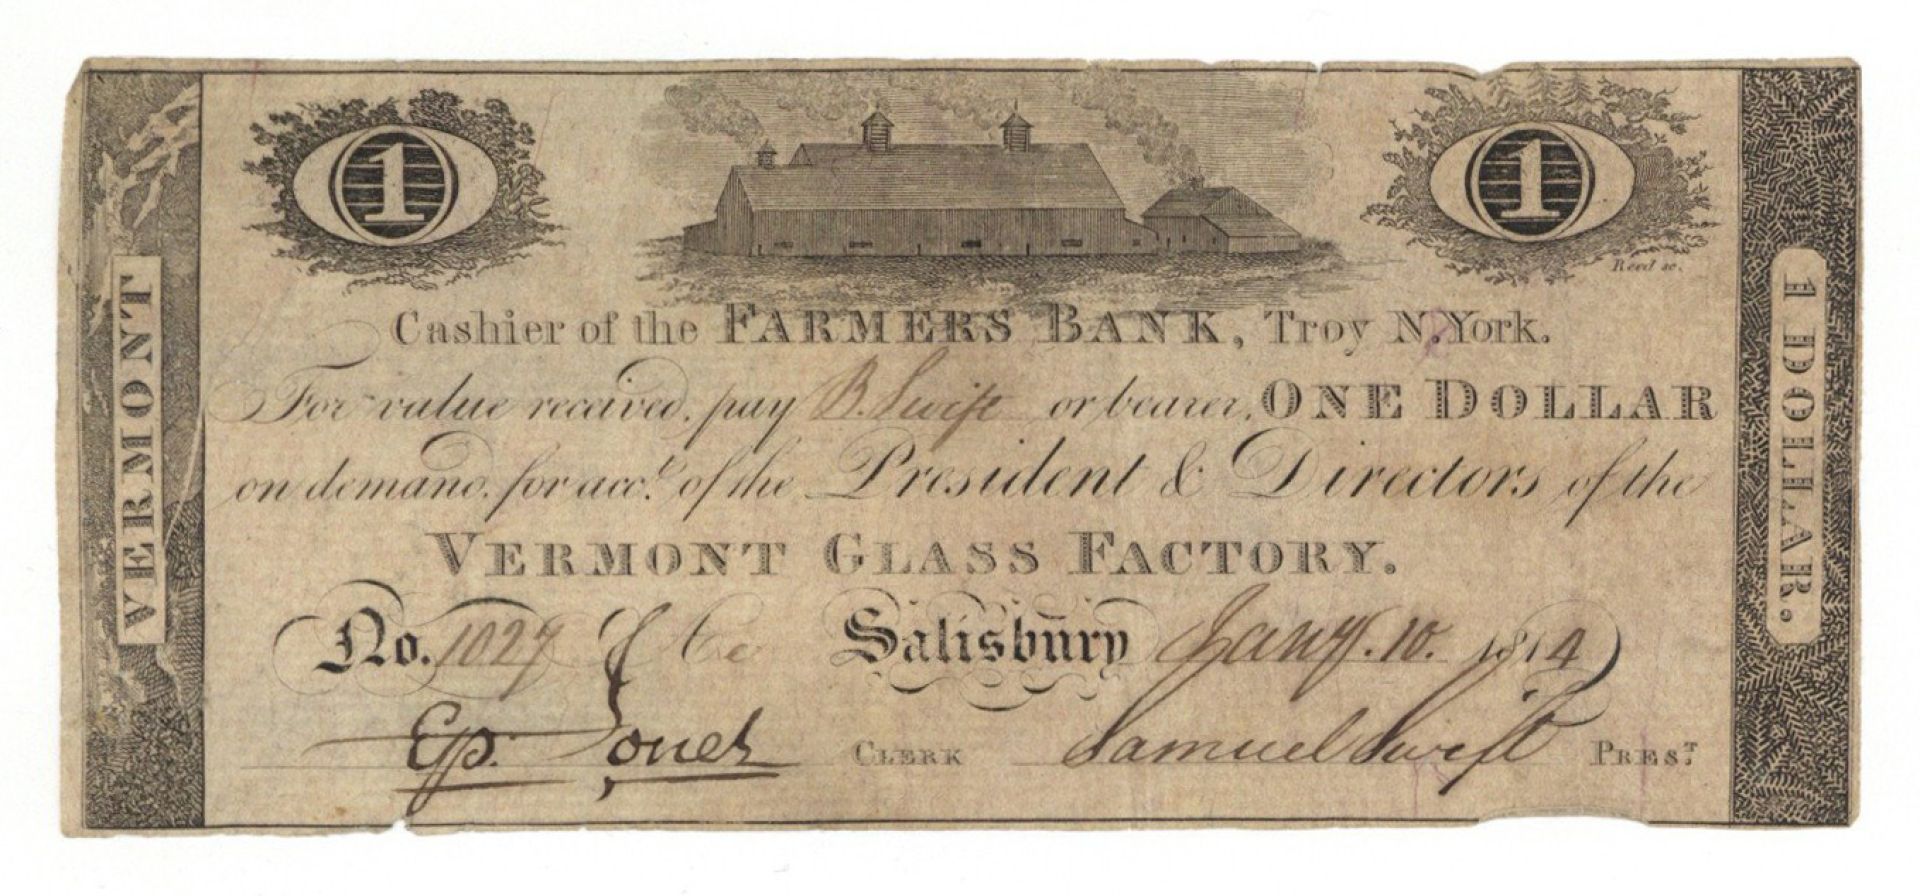 1
1
Reed sc.
VERMONT
1 DOLLAR.
Cashier of the FARMERS BANK, Troy N. York.
For value received, pay B. Swift or bearer, ONE DOLLAR
on demand, for acct. of the President & Directors of the
VERMONT GLASS FACTORY.
No. 1027 Salisbury Jany. 10. 1814
Ep. Jones CLERK Samuel Swift PREST